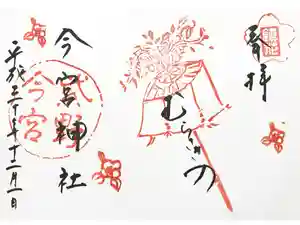 奉拝
むらさきの
今宮神社
今宮
平成三十年十二月一日